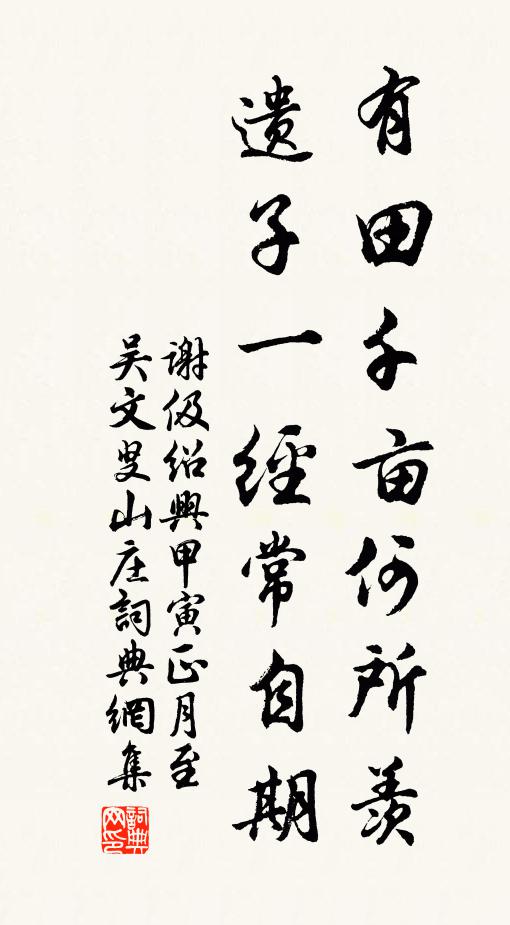 有田千亩何所羡
遗子一經常自期
谢伋绍興甲寅正月至
吴文叟山庄詞典網集
詞典网印